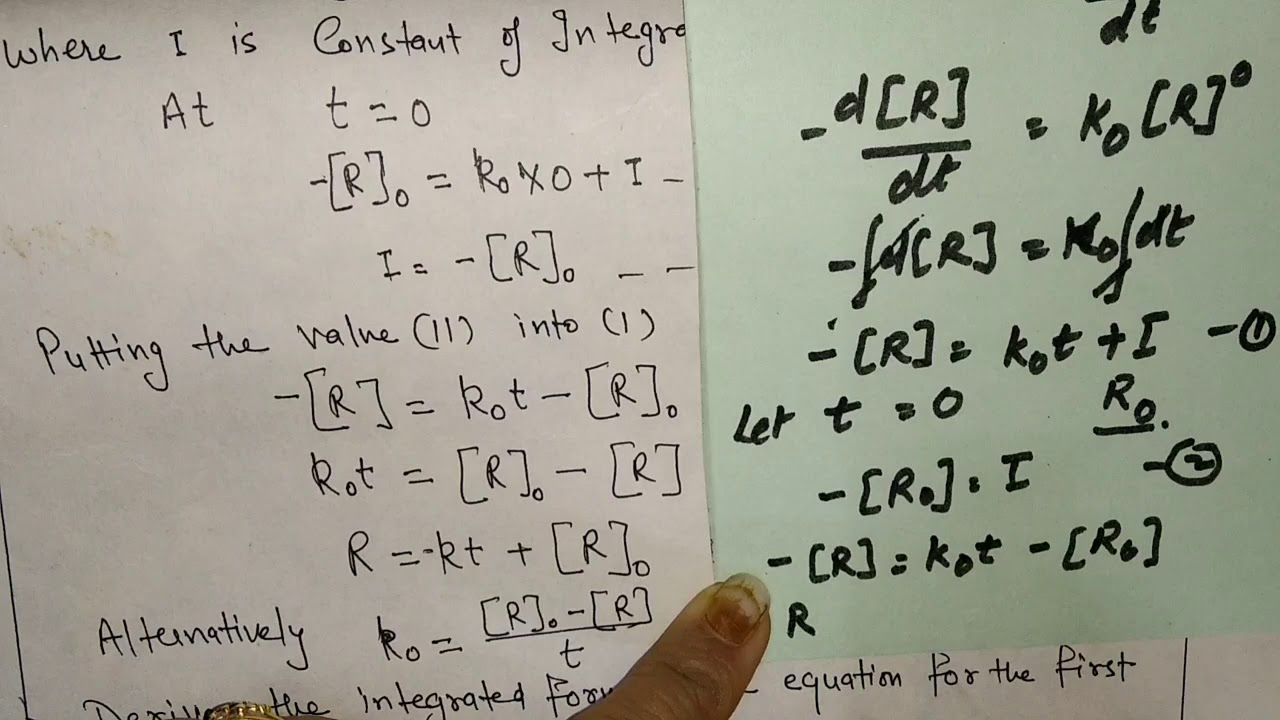 Where I is Constaut of Integra
At t = 0
-[R]₀ = k₀×0 + I -
I = -[R]₀ - -
Putting the value (II) into (I)
-[R] = k₀t - [R]₀
k₀t = [R]₀ - [R]
R = -kt + [R]₀
Alternatively k₀ = [R]₀-[R] / t
the integrated equation for the first
dt
-d[R]/dt = k₀[R]⁰
-∫d[R] = k₀∫dt
-[R] = k₀t + I -①
Let t = 0 R₀.
-[R₀] = I -②
-[R] = k₀t - [R₀]
R